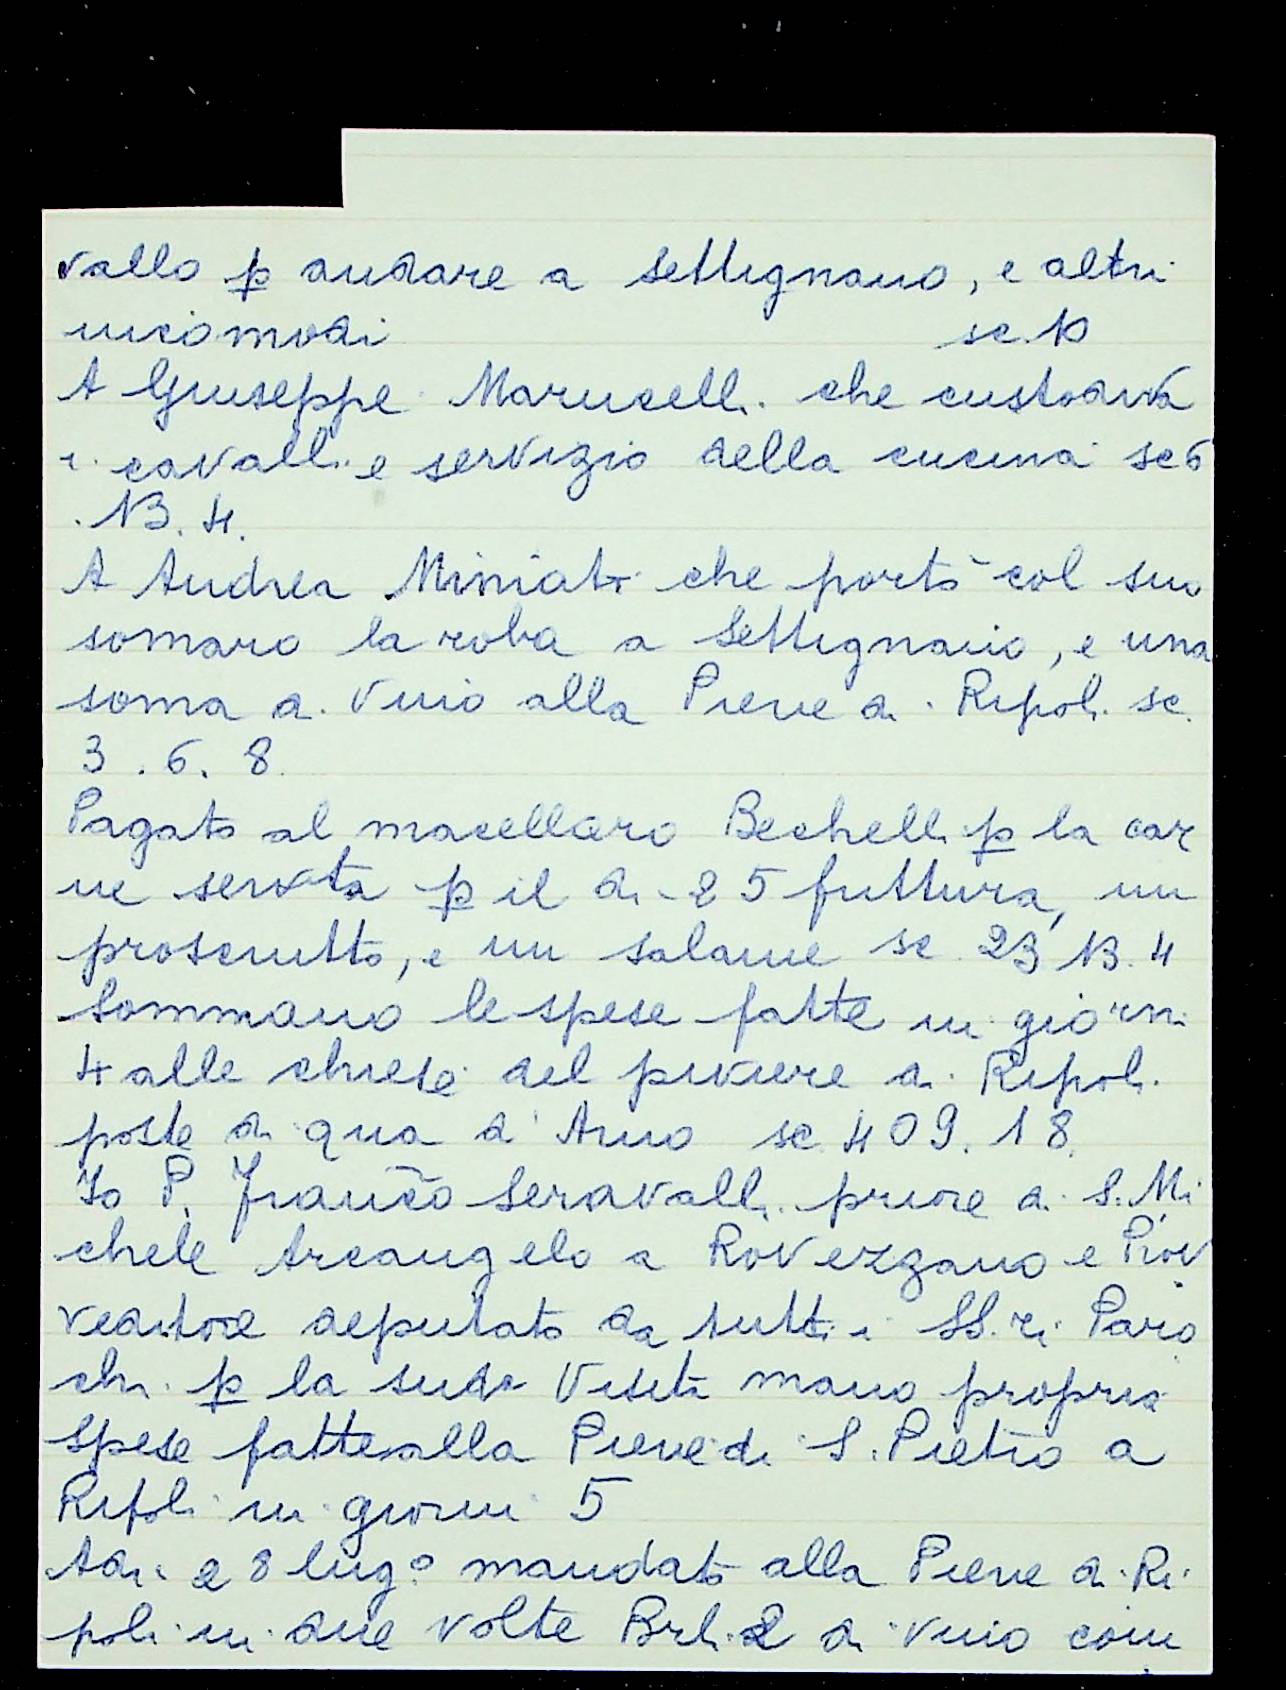 vallo p andare a Settignano, e altri
incomodi sc. 10
A Giuseppe Marucelli che custodiva
i cavalli e servizio della cucina sc 6
. 13. 4.
A Andrea Miniati che portò col suo
somaro la roba a Settignano, e una
soma di vino alla Pieve di Ripoli sc.
3 . 6. 8.
Pagato al macellaro Bechelli p la car
ne servita p il dì 25 futtura, un
prosciutto, e un salame sc. 23 13. 4
Sommano le spese fatte in giorni
4 alle chiese del piviere di Ripoli
poste di qua d'Arno sc 409. 18.
Io P. Franco Seravalli priore di S. Mi
chele Arcangelo a Rovezzano e Prov
veditore deputato da tutti i SS.ri Paro
chi p la sudta Visita mano propria
Spese fatte alla Pieve di S. Pietro a
Ripoli in giorni 5
Adi 28 lugo mandato alla Pieve di Ri
poli in due volte Brli 2 di vino com